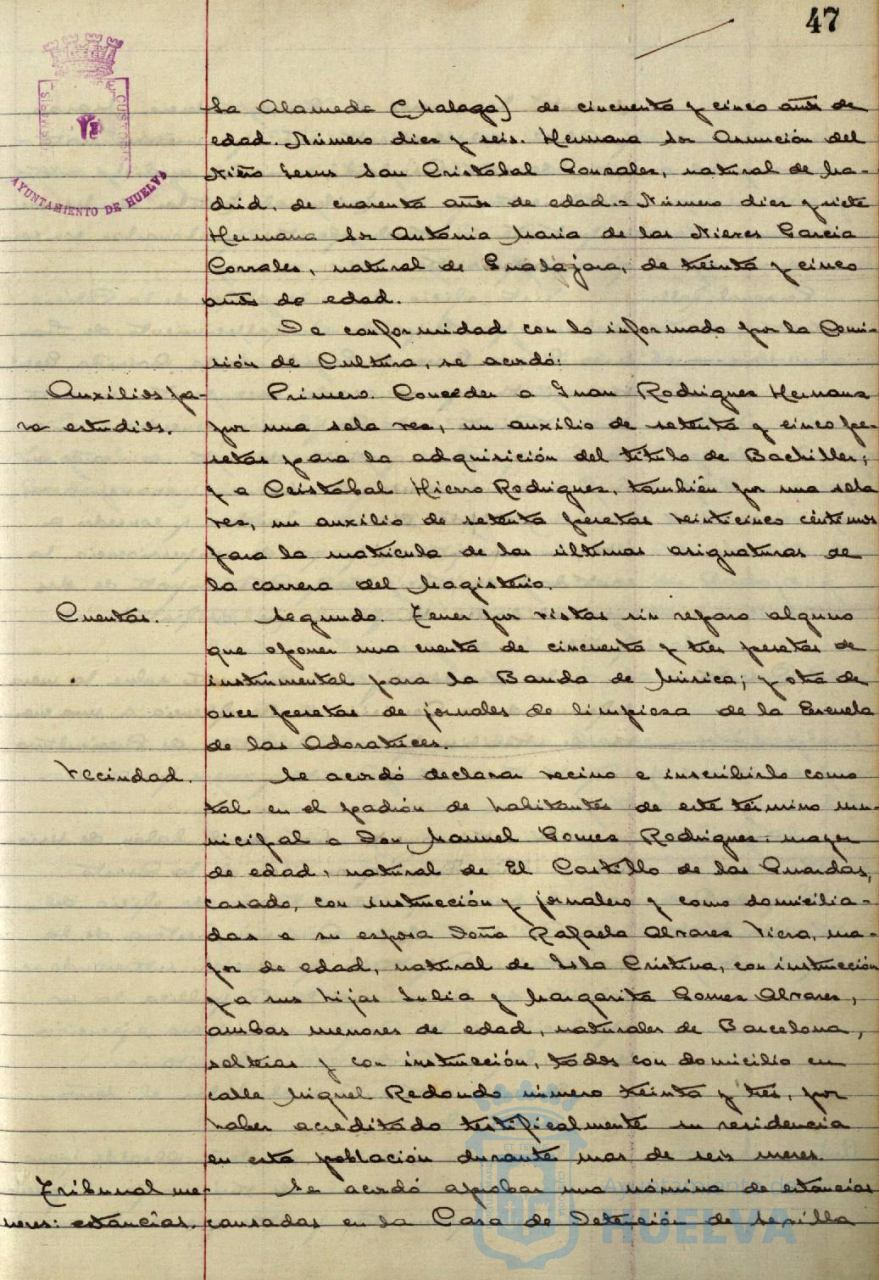 47
AYUNTAMIENTO DE HUELVA
La Alameda (Malaga) de cincuenta y cinco años de
edad. Número diez y seis. Hermana Sor Asunción del
Niño Jesus San Cristóbal Gonzalez, natural de Ma-
drid, de cuarenta años de edad = Número diez y siete
Hermana Sor Antonia Maria de las Nieves Garcia
Corrales, natural de Gualajara, de treinta y cinco
años de edad.
De conformidad con lo informado por la Comi-
sión de Cultura, se acordó:
Auxilios pa-
ra estudios.
Primero. Conceder a Juan Rodriguez Hermana
por una sola vez, un auxilio de setenta y cinco pe-
setas para la adquisición del titulo de Bachiller;
y a Cristóbal Hierro Rodriguez, también por una sola
vez, un auxilio de setenta pesetas veinticinco céntimos
para la matricula de las últimas asignaturas de
la carrera del Magisterio.
Cuentas.
Segundo. Tener por vistas sin reparo alguno
que oponer una cuenta de cincuenta y tres pesetas de
instrumental para la Banda de Música; y otra de
once pesetas de jornales de limpieza de la Escuela
de las Adoratrices.
Vecindad.
Se acordó declarar vecino e inscribirlo como
tal en el padrón de habitantes de este término mu-
nicipal a Don Manuel Gomez Rodriguez, mayor
de edad, natural de El Castillo de las Guardas,
casado, con instrucción y jornalero y como domicilia-
das a su esposa Doña Rafaela Alvarez Viera, ma-
yor de edad, natural de Isla Cristina, con instrucción
y a sus hijas Julia y Margarita Gomez Alvarez,
ambas menores de edad, naturales de Barcelona,
solteras y con instrucción, todos con domicilio en
calle Miguel Redondo número treinta y tres, por
haber acreditado testificalmente su residencia
en esta población durante mas de seis meses.
Tribunal me-
nores: estancias.
Se acordó aprobar una nómina de estancias
causadas en la Casa de Detención de Sevilla
HUELVA